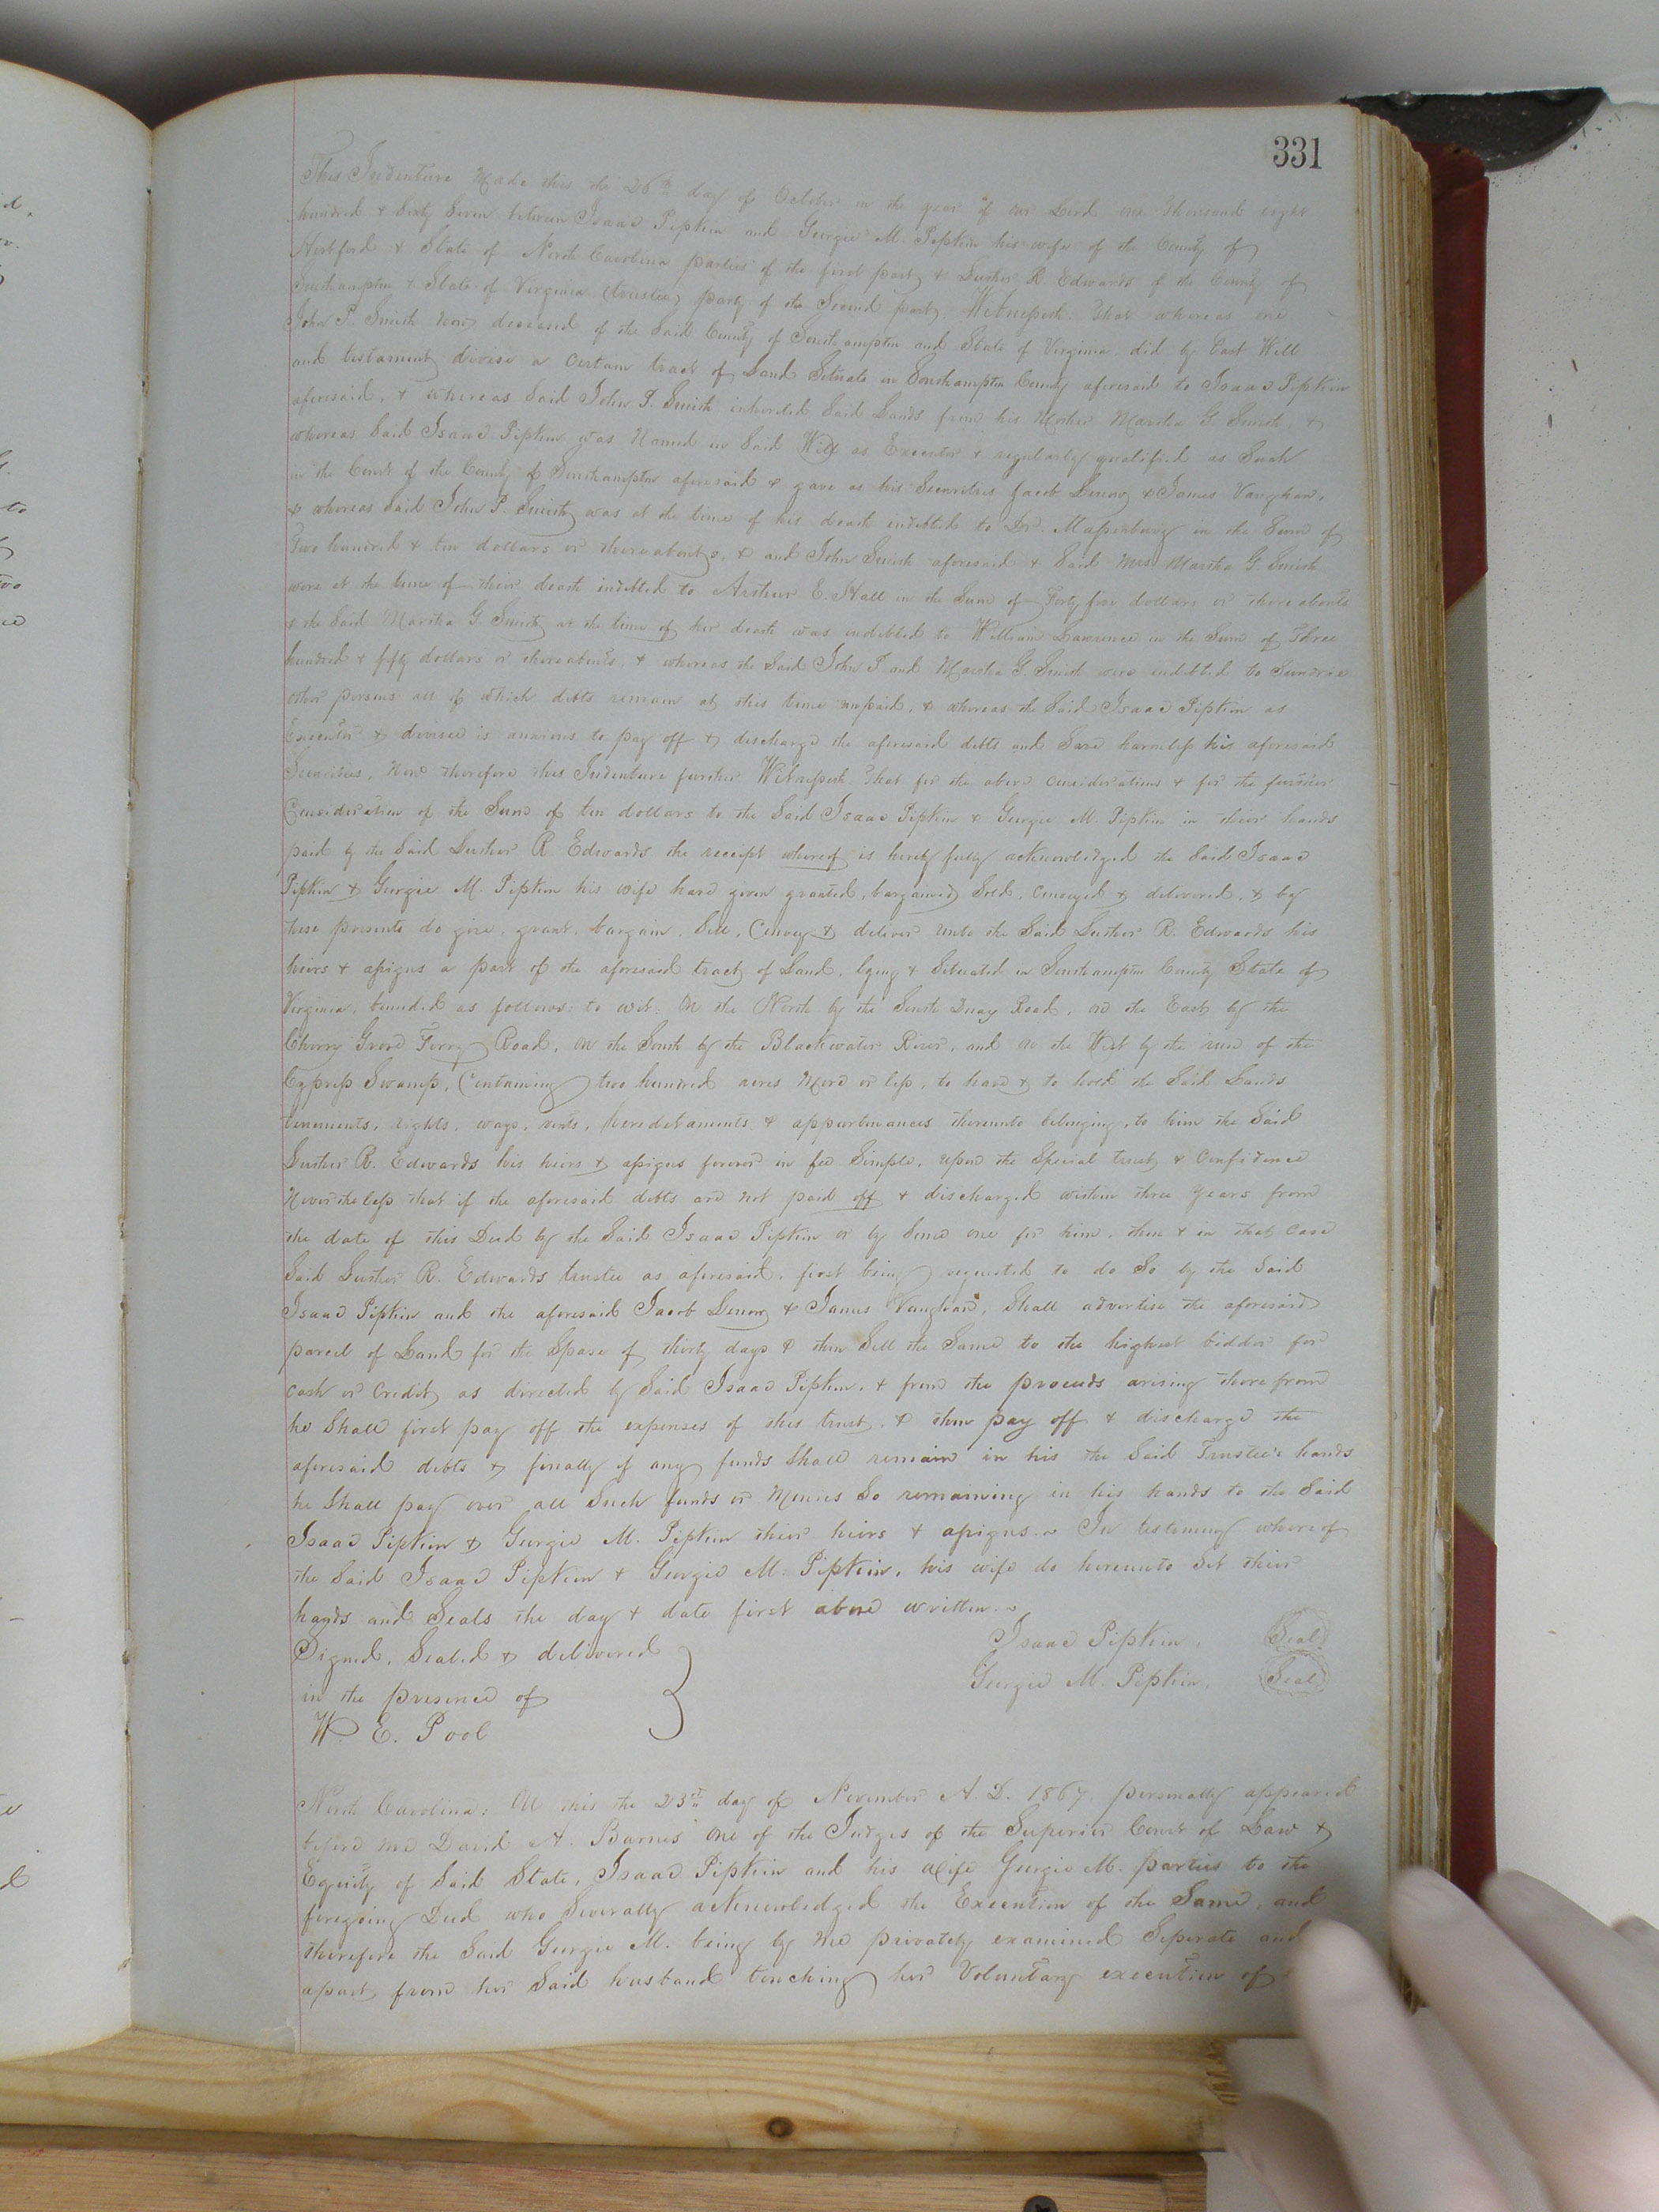 331
This Indenture Made this the 26th day of October in the year of our Lord one Thousand eight
hundred & Sixty Seven between Isaac Pipkin and Georgie M. Pipkin his wife of the County of
Hertford & State of North Carolina parties of the first part & Luther R. Edwards of the County of
Southampton & State of Virginia (trustee) party of the Second part, Witnesseth. That whereas one
John P. Smith now deceased of the Said County of Southampton and State of Virginia did by Last Will
and testament devise a Certain tract of Land Situate in Southampton County aforesaid to Isaac Pipkin
aforesaid, & whereas Said John P. Smith inherited Said Lands from his Mother Martha G. Smith, &
whereas Said Isaac Pipkin was Named in Said Will as Executor & regularly qualified as Such
in the Court of the County of Southampton aforesaid & gave as his Securities Jacob & James Vaughan,
& whereas Said John P. Smith was at the time of his death indebted to Dr. Massenburg in the Sum of
Two hundred & ten dollars or thereabouts, & and John Smith aforesaid & Said Mrs Martha G. Smith
were at the time of their death indebted to Arthur E. Hall in the Sum of Forty five dollars or thereabouts
& the Said Martha G Smith at the time of her death was indebted to William Lawrence in the Sum of Three
hundred & fifty dollars or thereabouts, & whereas the Said John P and Martha G. Smith were indebted to Sundrie
other persons all of which debts remain at this time unpaid, & whereas the Said Isaac Pipkin as
Executor & devisee is anxious to pay off & discharge the aforesaid debts and Save harmless his aforesaid
Securities, Now therefore this Indenture further Witnesseth That for the above considerations & for the further
Consideration of the Sum of ten dollars to the Said Isaac Pipkin & Georgie M. Pipkin in their hands
paid by the Said Luther R. Edwards the receipt whereof is hereby fully acknowledged the Said Isaac
Pipkin & Georgie M. Pipkin his wife have given granted, bargained Sold, Conveyed & delivered, & by
these presents do give, grant, bargain, Sell, Convey & deliver unto the Said Luther R. Edwards his
heirs & assigns a part of the aforesaid tract of Land, lying & Situated in Southampton County State of
Virginia, bounded as follows: to wit: On the North by the South Quay Road, on the East by the
Cherry Grove Ferry Road, on the South by the Blackwater River, and on the West by the run of the
Cypress Swamp, Containing two hundred acres More or less, to have & to hold the Said Lands
tenements, rights, ways, rents, heredetaments & appurtenances thereunto belonging, to him the Said
Luther R. Edwards his heirs & assigns forever in fee Simple, upon the Special trust & Confidence
Nevertheless that if the aforesaid debts are not paid off & discharged within three Years from
the date of this Deed by the Said Isaac Pipkin or by Some one for him, then & in that Case
Said Luther R. Edwards trustee as aforesaid, first being requested to do So by the Said
Isaac Pipkin and the aforesaid Jacob & James Vaughan, Shall advertise the aforesaid
parcel of Land for the Space of thirty days & then Sell the Same to the highest bidder for
cash or Credit, as directed by Said Isaac Pipkin, & from the proceeds arising therefrom
he Shall first pay off the expenses of this trust, & then pay off & discharge the
aforesaid debts & finally if any funds Shall remain in his the Said Trustee's hands
he Shall pay over all Such funds or Monies So remaining in his hands to the Said
Isaac Pipkin & Georgie M. Pipkin their heirs & assigns. In testimony whereof
the Said Isaac Pipkin & Georgie M. Pipkin, his wife do hereunto Set their
hands and Seals the day & date first above written.
Signed, Sealed & delivered
in the presence of
W. E. Pool
Isaac Pipkin, Seal
Georgie M. Pipkin, Seal
North Carolina: On this the 23rd day of November A. D. 1867. personally appeared
before me David A. Barnes One of the Judges of the Superior Court of Law &
Equity of Said State, Isaac Pipkin and his wife Georgie M. parties to the
foregoing Deed who Severally acknowledged the Execution of the Same, and
therefore the Said Georgie M. being by me privately examined Seperate and
apart, from her Said husband touching her Voluntary execution of